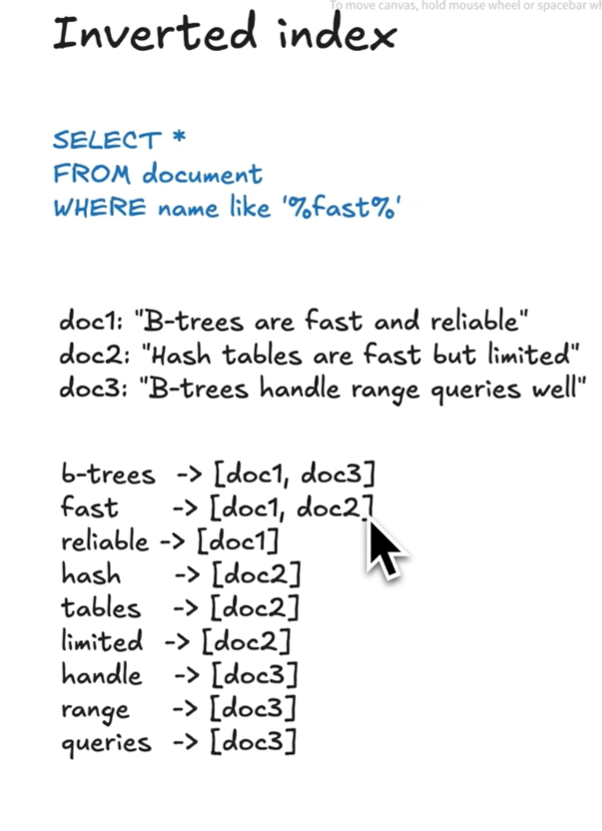 To move canvas, hold mouse wheel or spacebar wh
Inverted index
SELECT *
FROM document
WHERE name like '%fast%'
doc1: "B-trees are fast and reliable"
doc2: "Hash tables are fast but limited"
doc3: "B-trees handle range queries well"
b-trees -> [doc1, doc3]
fast -> [doc1, doc2]
reliable -> [doc1]
hash -> [doc2]
tables -> [doc2]
limited -> [doc2]
handle -> [doc3]
range -> [doc3]
queries -> [doc3]